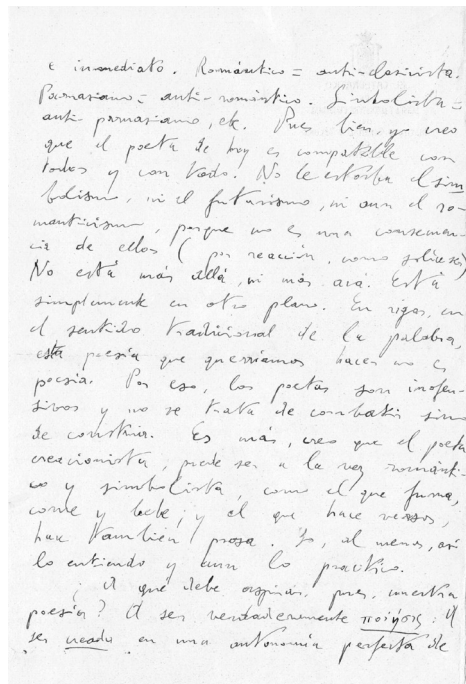 e inmediato. Romántico = anti-clasicista.
Parnasiano = anti-romántico. Simbolista =
anti-parnasiano, etc. Pues bien, yo creo
que el poeta de hoy es compatible con
todos y con todo. No le estorba el sim
bolismo, ni el futurismo, ni aun el ro-
manticismo, porque no es una consecuen-
cia de ellos (por reacción, como suele ser)
No está más allá, ni más acá. Está
simplemente en otro plano. En rigor, en
el sentido tradicional de la palabra,
esta poesía que querríamos hacer no es
poesía. Por eso, los poetas son inofen-
sivos y no se trata de combatir sino
de construir. Es más, creo que el poeta
creacionista, puede ser a la vez románti-
co y simbolista, como el que fuma,
come y bebe; y el que hace versos,
hace también prosa. Yo, al menos, así
lo entiendo y aun lo practico.
¿A qué debe aspirar, pues, nuestra
poesía? A ser verdaderamente ποίησις: A
ser creada en una autonomía perfecta de